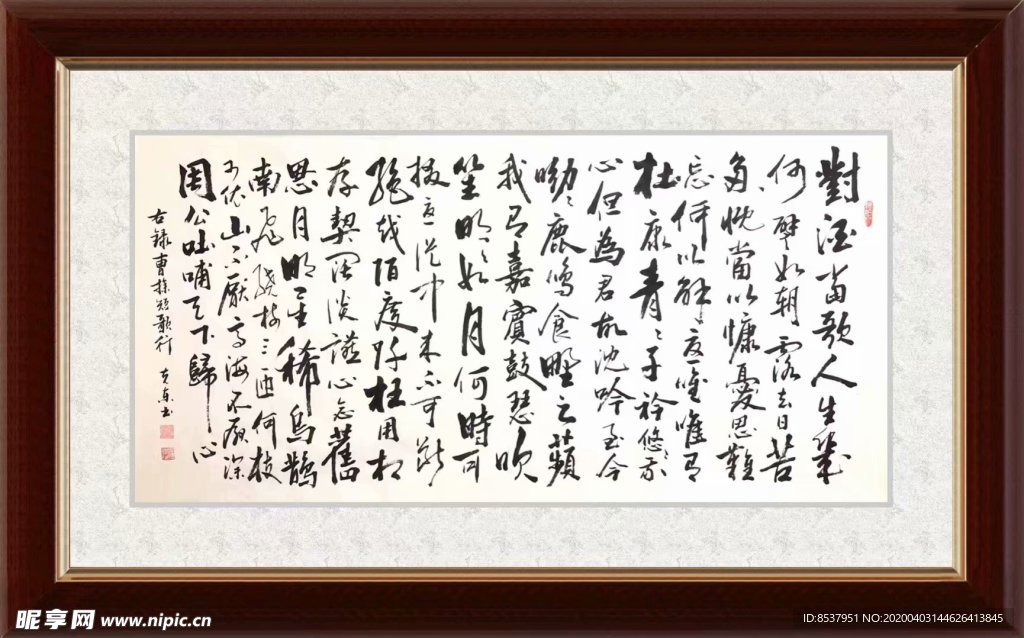 對酒當歌人生幾
何譬如朝露去日苦
多慨當以慷憂思難
忘何以解憂唯有
杜康青々子衿悠々我
心但為君故沈吟至今
呦々鹿鳴食野之蘋
我有嘉賓鼓瑟吹
笙明々如月何時可
掇憂從中來不可斷
絕越陌度阡枉用相
存契闊談讌心念舊
恩月明星稀烏鵲
南飛繞樹三匝何枝
可依山不厭高海不厭深
周公吐哺天下歸心
右錄曹操短歌行
昵享网 www.nipic.cn
ID:8537951 NO:20200403144626413845